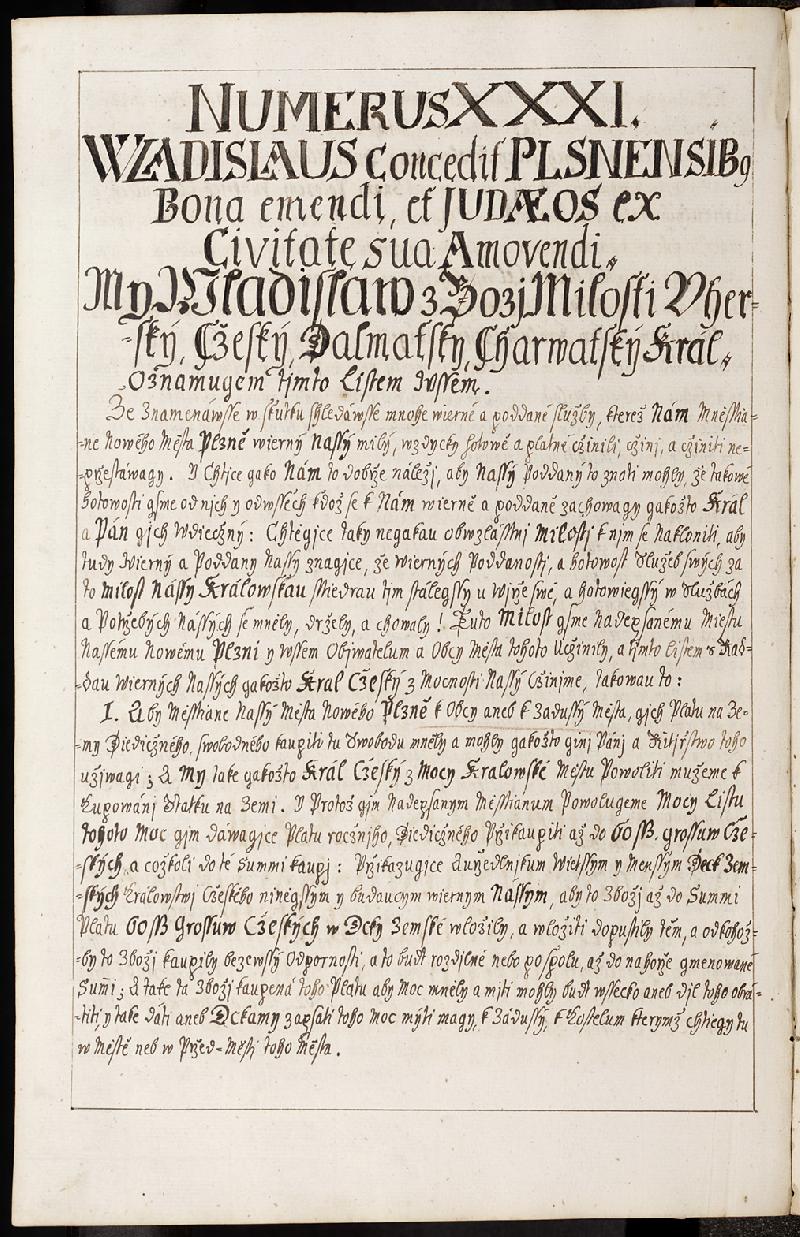 NUMERUS XXXI.
WLADISLAUS Concedit PLSNENSIB9
Bona emendi, et JUDÆOS ex
Civitate sua Amovendi.,
My Wladislaw z Bozj Milosti Vher-
-ský, Cžeský, Dalmatsky, Charwatský Král.,
Oznamugem tjmto Listem dvssem.
Že Znamenáwsse w skutku shledáwsse mnohe wierné a poddané služby, kterež Nám Mněsstia-
-ne Nowého Města Plzně wierný Nassý milý, wzdycky hotowě a platně cžinili, cžinj, a cžiniti ne-
-přestáwagy. Y Chtice gako Nám to dobrže náležj, aby Nassý Poddaný to znáti mohly, že takowé
hotowosti gsme od nich y odwssech kdož se k Nám wierně a poddaně zachowagy gakožto Král
a Pán gich Wdiecžný: Chtěgjce taky negakau obwzlásstnj Milostj k nim se nakloniti, aby
tudy Wierný a Poddany Nassý znagjce, že wiernych Poddanosti, a hotowost Služeb swých za
to milost Nássý Králowskau sstiedrau tjm stálegssy u Wjrže swé, a hotowiegssý w Službách
a Potržebých Nássých se měly, držely, a chowaly! Tuto Milost gsme Nadepsanému Miestu
Nassému Nowému Plzni y wssem Obywatelum a Obcy Města tohoto Ucžinily, a tjmto listem s Rad-
-dau wierných Nassých gakožto Kral Cžeský z Mocnosti Nassý Cžinjme, takowau to:
I. Aby Měsstiane Nassý Města Nowého Plzně k Obcy aneb k Zadussý Města, gich Platu na Ze-
-my Diedicžného, swobodného kaupiti tu Swobodu měly a mohly gakožto ginj Pánj a Rytjřstwo toho
užjwagi; A My také gakožto Král Cžeský z Mocy Kralowské Městu Powoliti mužeme k
Kupowánj Statku na Zemi. Y Protož gim Nadepsanym Měsstianum Powolugeme Mocy Listu
tohoto Moc gim dáwagjce Platu rocžnjho, Diedicžného Pržikaupiti až do 60 sß. grossuw Cže-
-ských, a cožkoli do té Summi kaupj: Pržikazugjce Auržednjkum Wietssým y Menssým Deck Zem-
-ských Králowstwj Cžeského ninegssým y budaucym wiernym Nassym, aby to Zbožj až do Summi
Platu 60 sß Grossúw Cžeských w Dcky Zemské wložily, a wložiti dopustily těm, a od kohož-
-by to Zbožj kaupily bezewssý Odpornosti, a to budt rozdilně nebo pospolu, až do nahorže gmenowané
Sum̄i; A také ta Zbožj kaupená toho Platu aby Moc měly a mjti mohly budt wssecko aneb djl toho obrá-
-titi, y také dáti aneb Dckamy zapsáti toho moc mýti magy, k Zádussý, k Kostelum kterymž chtiegy tu
w Městě neb w Pržed-Městj toho Města.